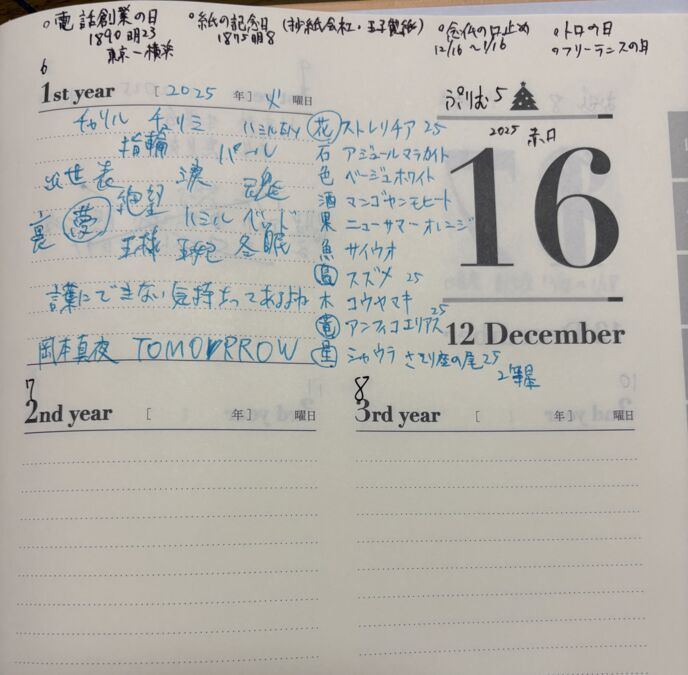 ○電話創業の日 ○紙の記念日 (抄紙会社・王子製紙) ○念仏の口止め ○トロの日
1890 明23 1875 明8 12/16~1/16 ○フリーランスの日
東京ー横浜
6
1st year [ 2025 年] 火 曜日
チャリル チャリミ ハミル
指輪 パール
出世 表 涙 魂
裏 夢 絶望 ハミル
王様 王妃 冬眠
言葉にできない気持ちってあるよね
岡本真夜 TOMORROW
花 ストレリチア 25
石 アジュールマラカイト
色 ベージュホワイト
酒 マンゴヤンモヒート
果 ニューサマーオレンジ
魚 サイウオ
鳥 スズメ 25
木 コウヤマキ
竜 アンフィコエリアス 25
星 シャウラ さそり座の尾 25
2等星
ぷりむ 5
2025 赤口
16
12 December
7
2nd year [ 年] 曜日
8
3rd year [ 年] 曜日